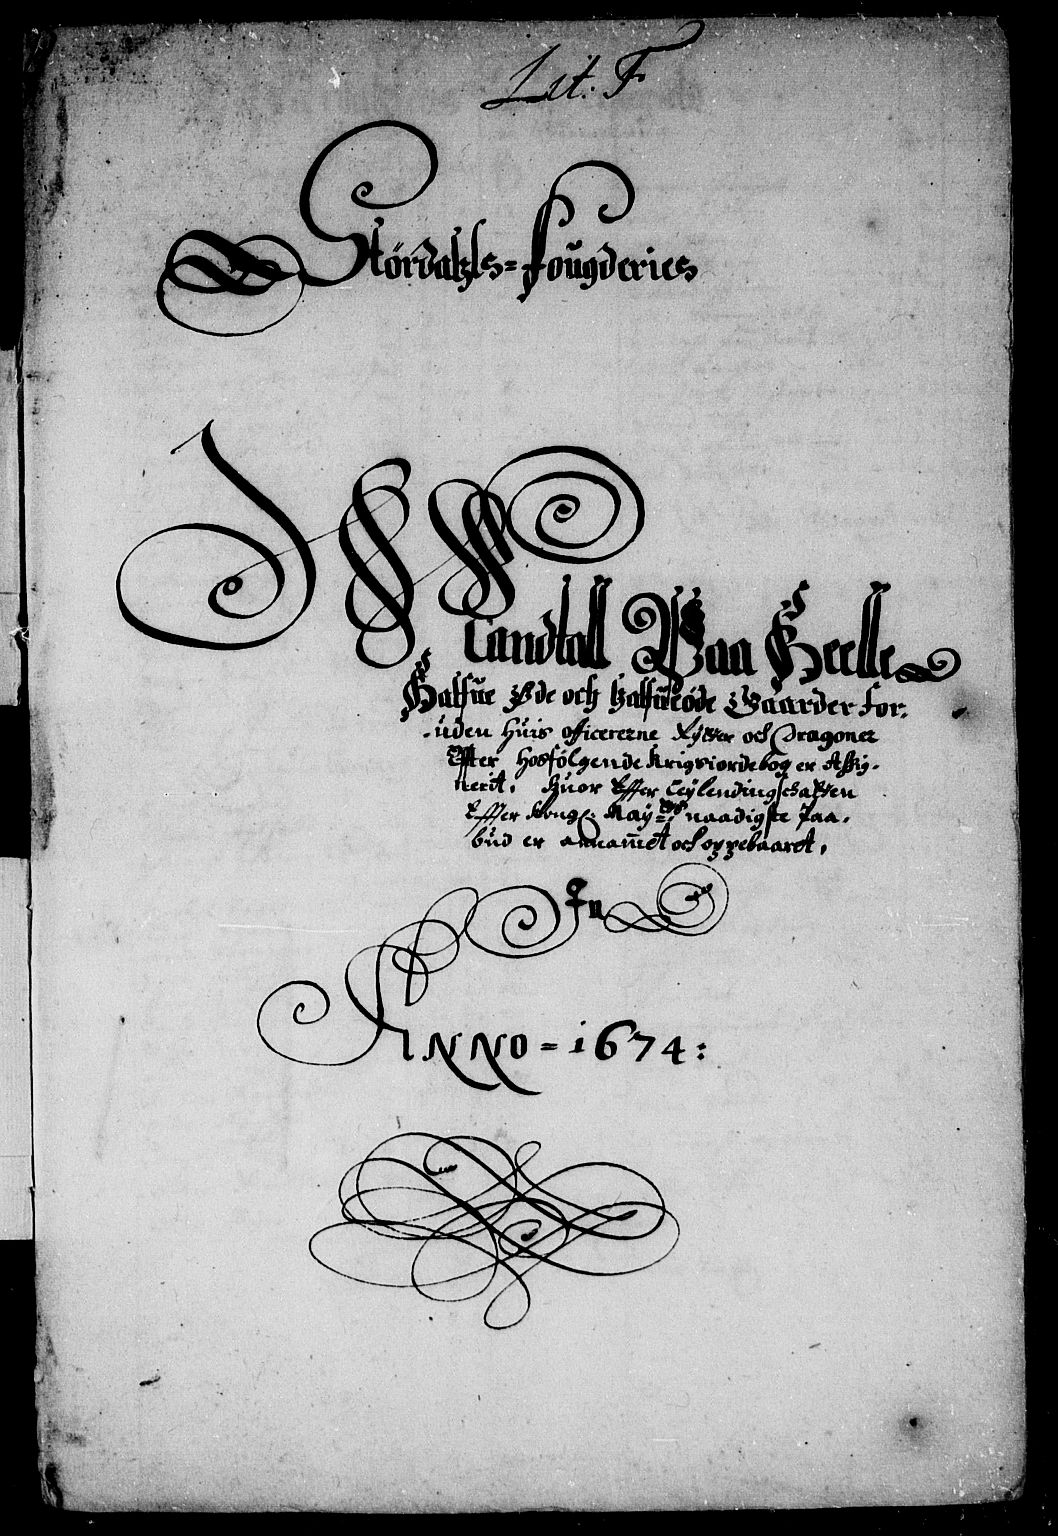 Lit: F
Stördahls=Fougderies
Mandtall Paa Heelle
Halfue Øde och halfueöde Gaarder For,
uden huis officererne Rytter och Dragoner
Effter hosfölgende krigsiordebog er Assig-
nerit, huor Effter Leylendingschatten
Effter Kong: May:tts naadigste Paa,
bud er annammet och oppebaaret,
In
ANNO = 1674: